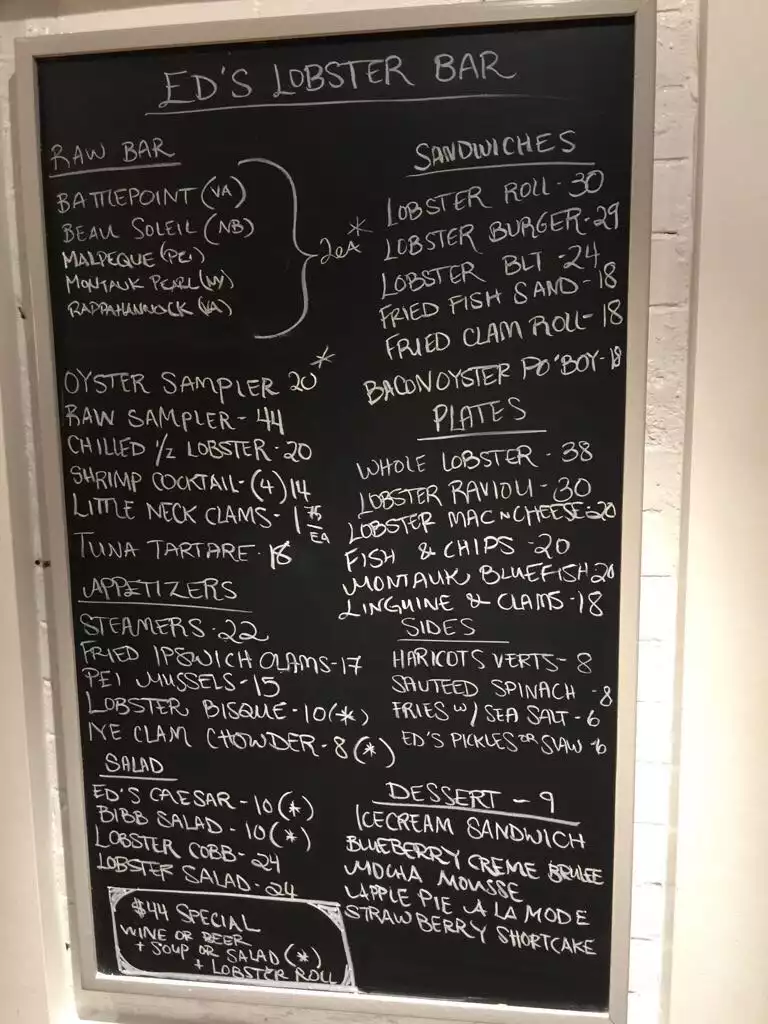 ED'S LOBSTER BAR
RAW BAR
BATTLEPOINT (VA)
BEAU SOLEIL (NB)
MALPEQUE (PEI)
MONTAUK PEARL (NY)
RAPPAHANNOCK (VA)
2EA*
OYSTER SAMPLER 20*
RAW SAMPLER - 44
CHILLED 1/2 LOBSTER - 20
SHRIMP COCKTAIL - (4) 14
LITTLE NECK CLAMS - 1 75 EA
TUNA TARTARE -
APPETIZERS
STEAMERS - 22
FRIED IPSWICH CLAMS - 17
PEI MUSSELS - 15
LOBSTER BISQUE - 10 (*)
NE CLAM CHOWDER - 8 (*)
SALAD
ED'S CAESAR - 10 (*)
BIBB SALAD - 10 (*)
LOBSTER COBB - 24
LOBSTER SALAD - 24
$44 SPECIAL
WINE OR BEER
+ SOUP OR SALAD (*)
+ LOBSTER ROLL
SANDWICHES
LOBSTER ROLL - 30
LOBSTER BURGER - 29
LOBSTER BLT - 24
FRIED FISH SAND - 18
FRIED CLAM ROLL - 18
BACON OYSTER PO'BOY - 18
PLATES
WHOLE LOBSTER - 38
LOBSTER RAVIOLI - 30
LOBSTER MAC N CHEESE - 20
FISH & CHIPS - 20
MONTAUK BLUEFISH 20
LINGUINE & CLAMS - 18
SIDES
HARICOTS VERTS - 8
SAUTEED SPINACH - 8
FRIES W/ SEA SALT - 6
ED'S PICKLES OR SLAW - 6
DESSERT - 9
ICECREAM SANDWICH
BLUEBERRY CREME BRULEE
MOCHA MOUSSE
APPLE PIE A LA MODE
STRAWBERRY SHORTCAKE